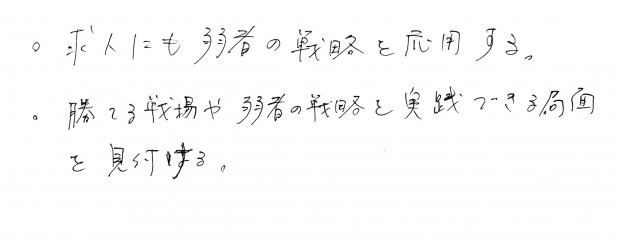 。求人にも弱者の戦略を応用する。
。勝てる戦場や弱者の戦略を実践できる局面
を見付ける。